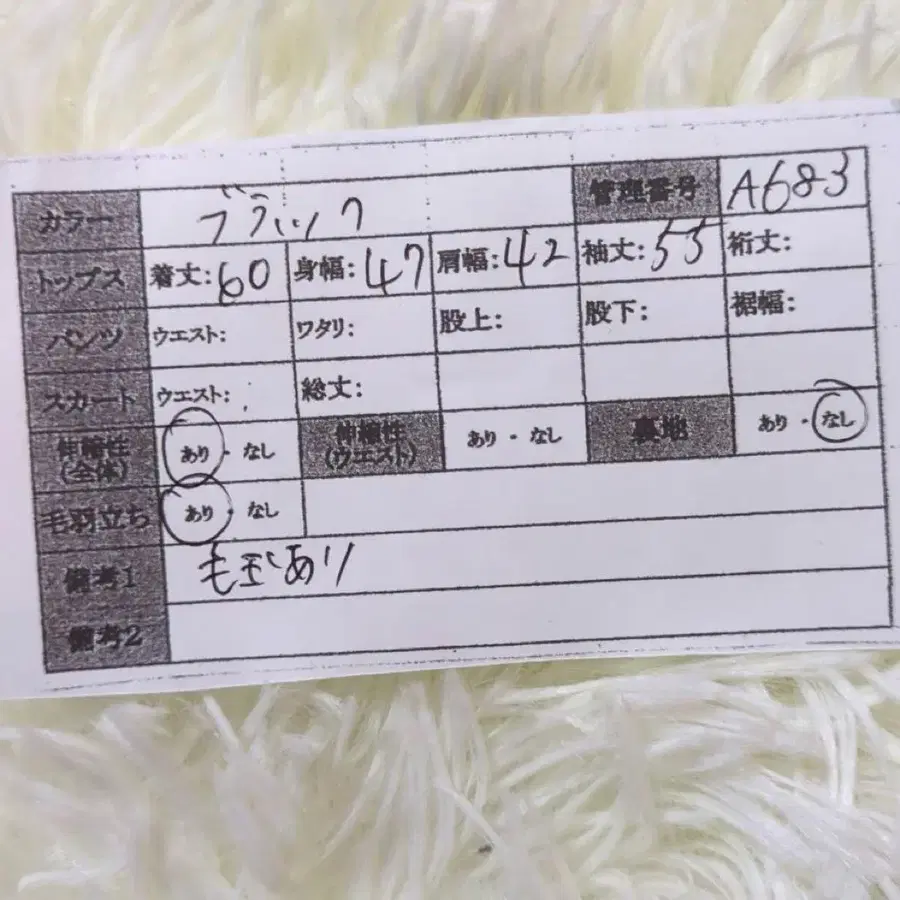 カラー ブラック 管理番号 A683
トップス 着丈: 60 身幅: 47 肩幅: 42 袖丈: 55 裄丈:
パンツ ウエスト: ワタリ: 股上: 股下: 裾幅:
スカート ウエスト: 総丈:
伸縮性(全体) あり・なし 伸縮性(ウエスト) あり・なし 裏地 あり・なし
毛羽立ち あり・なし
備考1 毛玉あり
備考2